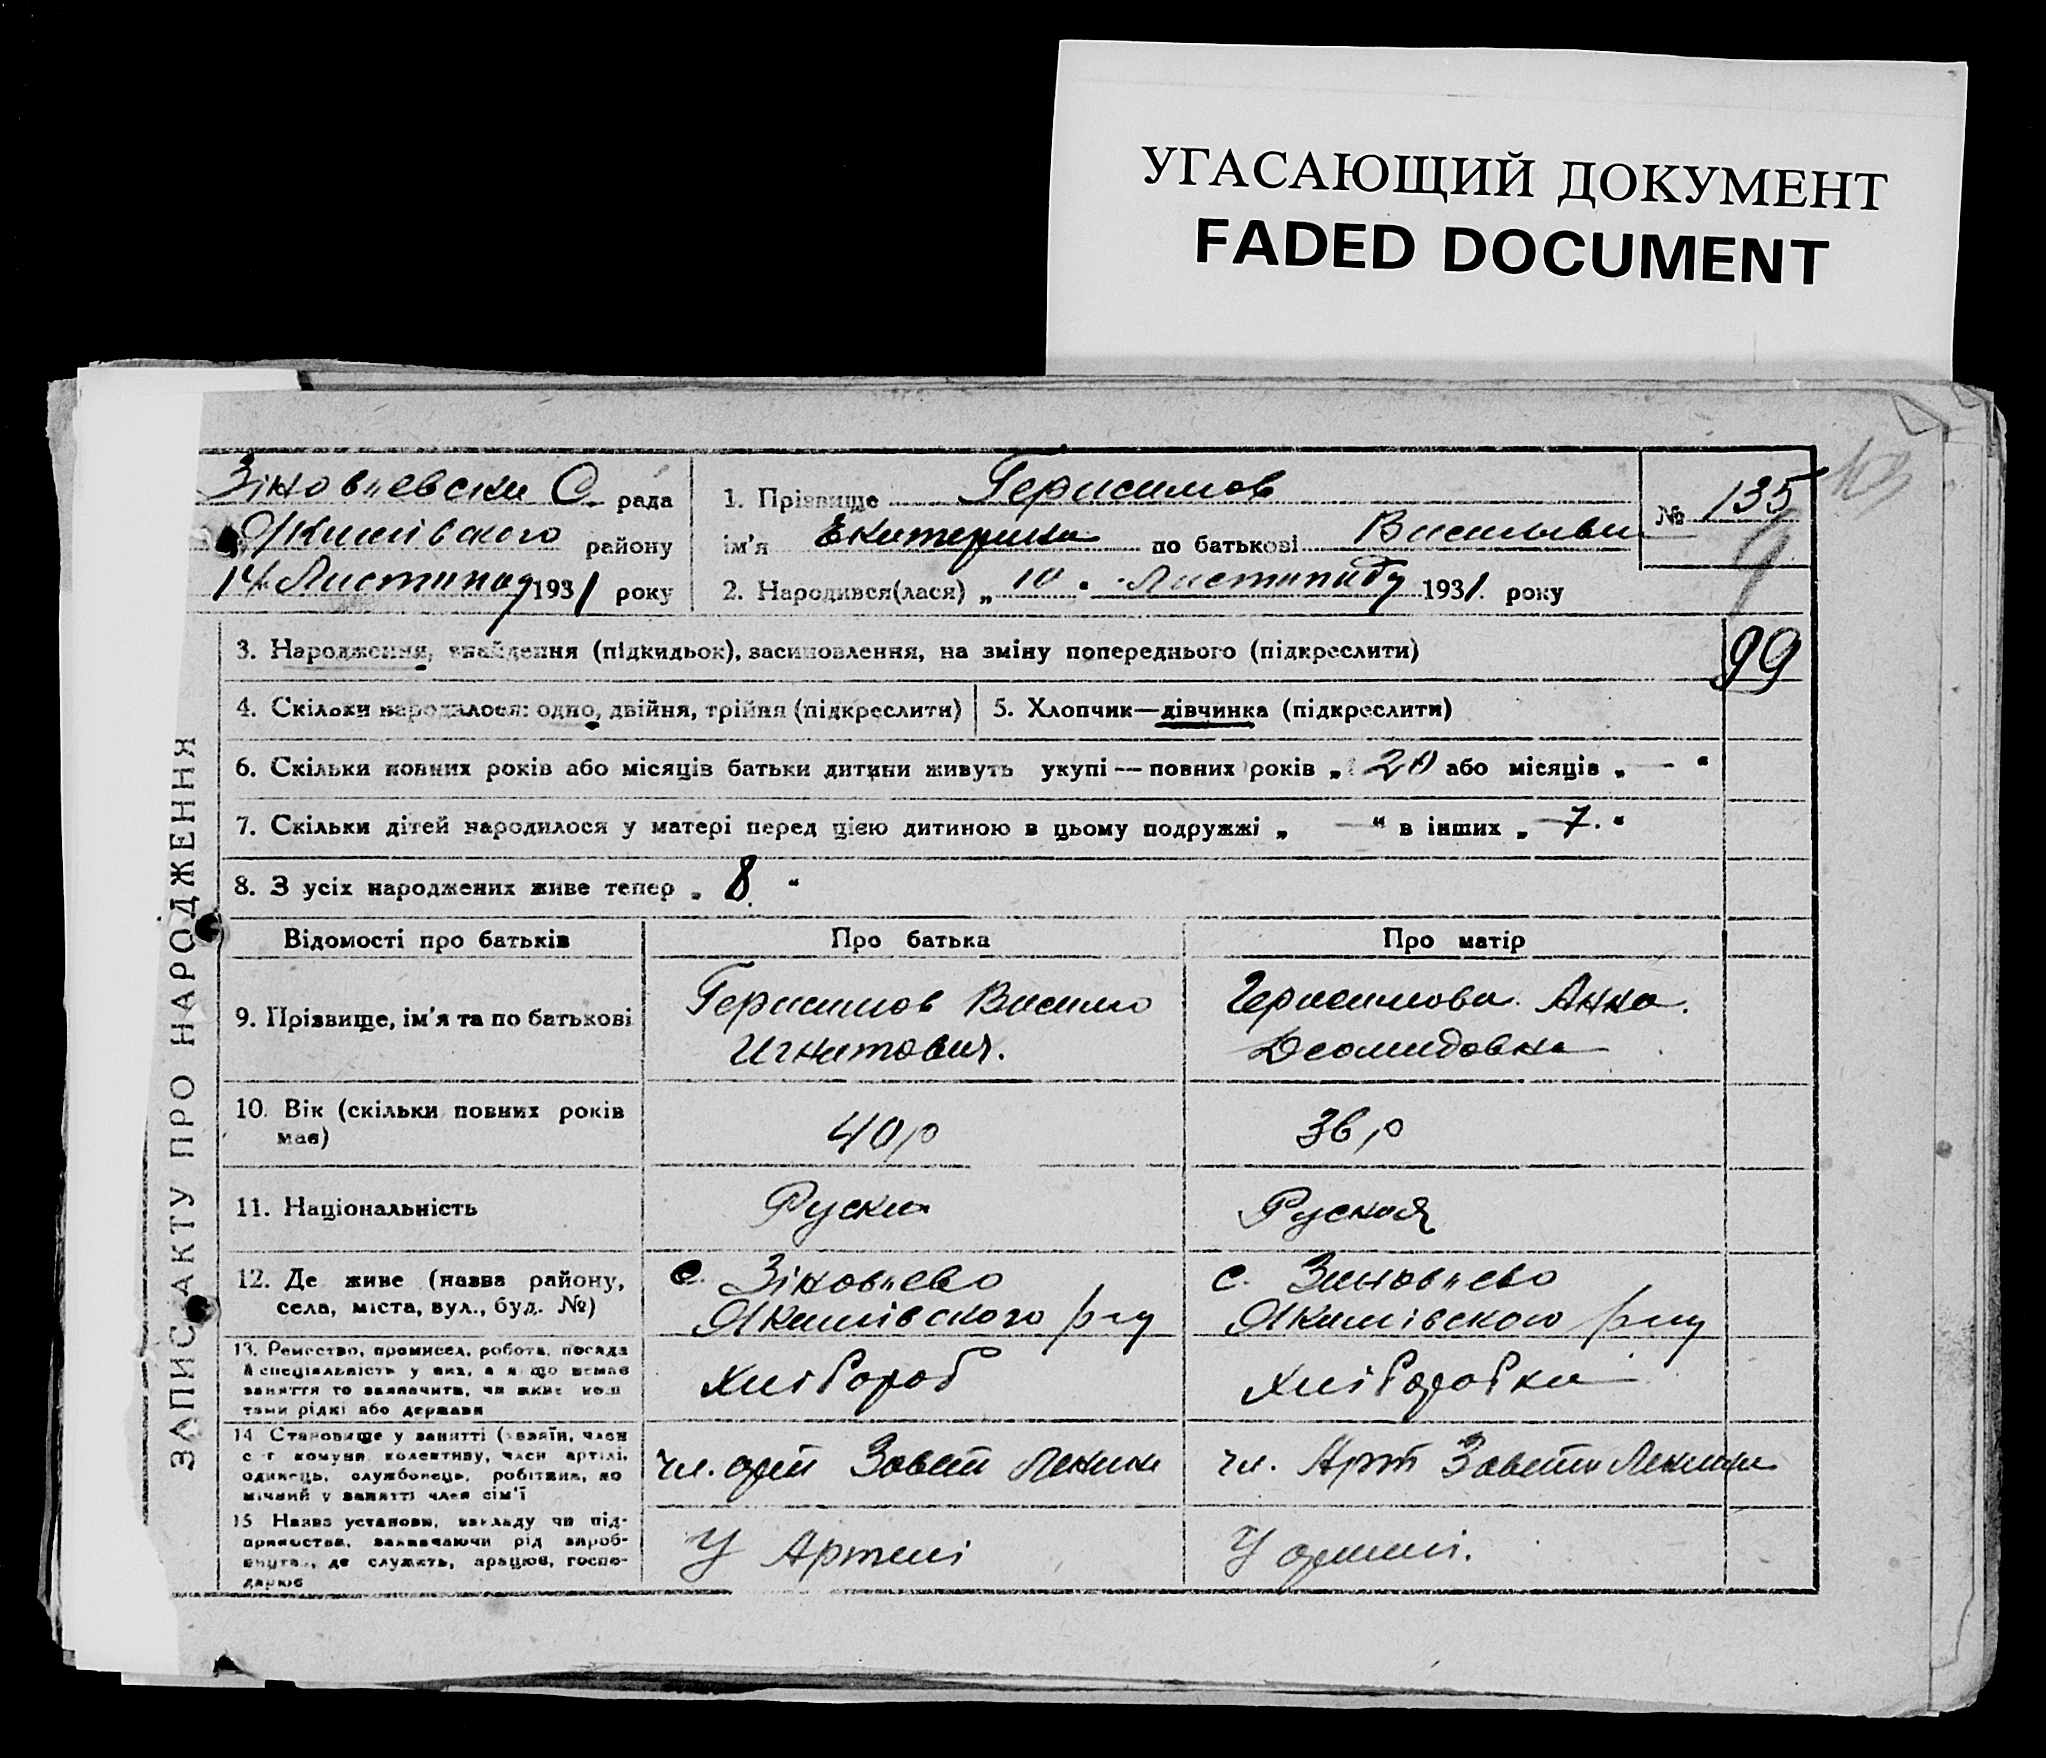 УГАСАЮЩИЙ ДОКУМЕНТ
FADED DOCUMENT
Зіновьевски С. рада
Якимівского району
14 Листопад 1931 року
1. Прізвище Герасимов
ім'я Екатерина по батькові Васильви
2. Народився(лася) „ 10 " Листопаду 1931. року
№ 135
99
ЗАПИС АКТУ ПРО НАРОДЖЕННЯ
3. Народження, знайдення (підкидьок), засиновлення, на зміну попереднього (підкреслити)
4. Скільки народилося: одно, двійня, трійня (підкреслити)
5. Хлопчик—дівчинка (підкреслити)
6. Скільки повних років або місяців батьки дитини живуть укупі — повних років „ 20 або місяців „ — "
7. Скільки дітей народилося у матері перед цією дитиною в цьому подружжі „ — " в інших „ 7. "
8. З усіх народжених живе тепер „ 8 "
Відомості про батьків
Про батька
Про матір
9. Прізвище, ім'я та по батькові
Герасимов Василь
Игнатович.
Герасимова Анна.
Деомидовна
10. Вік (скільки повних років
має)
40 р
36 р
11. Національність
Руски
Руская
12. Де живе (назва району,
села, міста, вул., буд. №)
с. Зіновьево
Якимівского р-ну
с. Зиновьево
Якимівского р-ну
13. Ремество, промисел, робота, посада
й спеціяльність у них, а якщо немає
заняття то зазначити, чи живе кош
тами рідні або держави
Хлібороб
Хліборобка
14. Становище у занятті (хазяїн, член
с-г комуни колективу, член артілі,
одинець, службовець, робітник, по
мічний у занятті член сім'ї
чл. арт Завет Ленина
чл. Арт Завети Ленина
15. Назва установи, закладу чи під-
приємства, зазначаючи рід вироб-
ництва, де служить, працює, госпо-
дарює
У Артелі
У артелі.